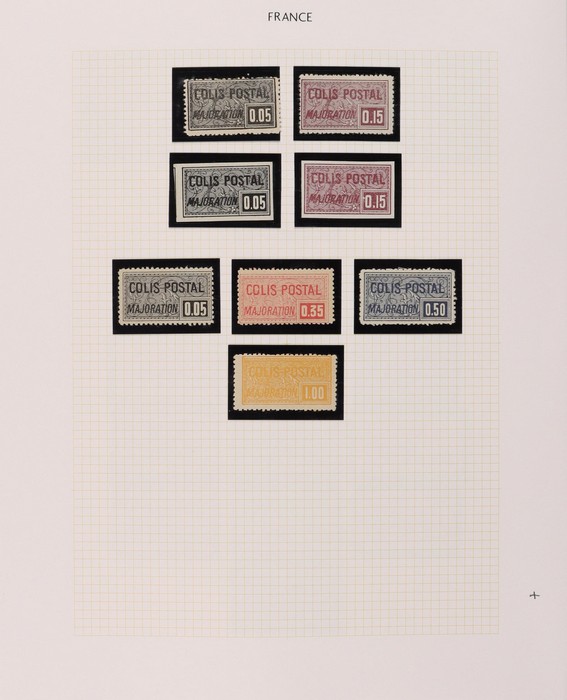 FRANCE
COLIS POSTAL
MAJORATION 0.05
COLIS POSTAL
MAJORATION 0.15
COLIS POSTAL
MAJORATION 0.05
COLIS POSTAL
MAJORATION 0.15
COLIS POSTAL
MAJORATION 0.05
COLIS POSTAL
MAJORATION 0.35
COLIS POSTAL
MAJORATION 0.50
COLIS POSTAL
MAJORATION 1.00